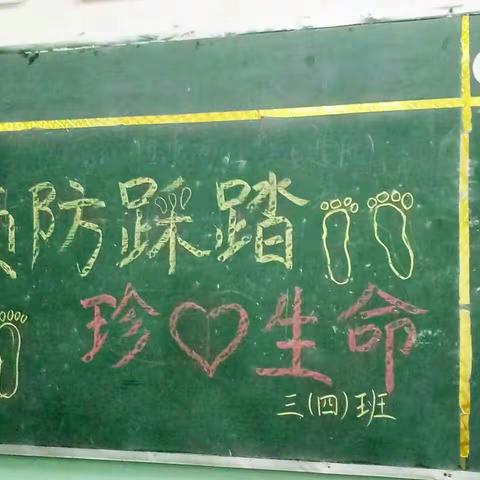 预防踩踏
珍♡生命
三(四)班